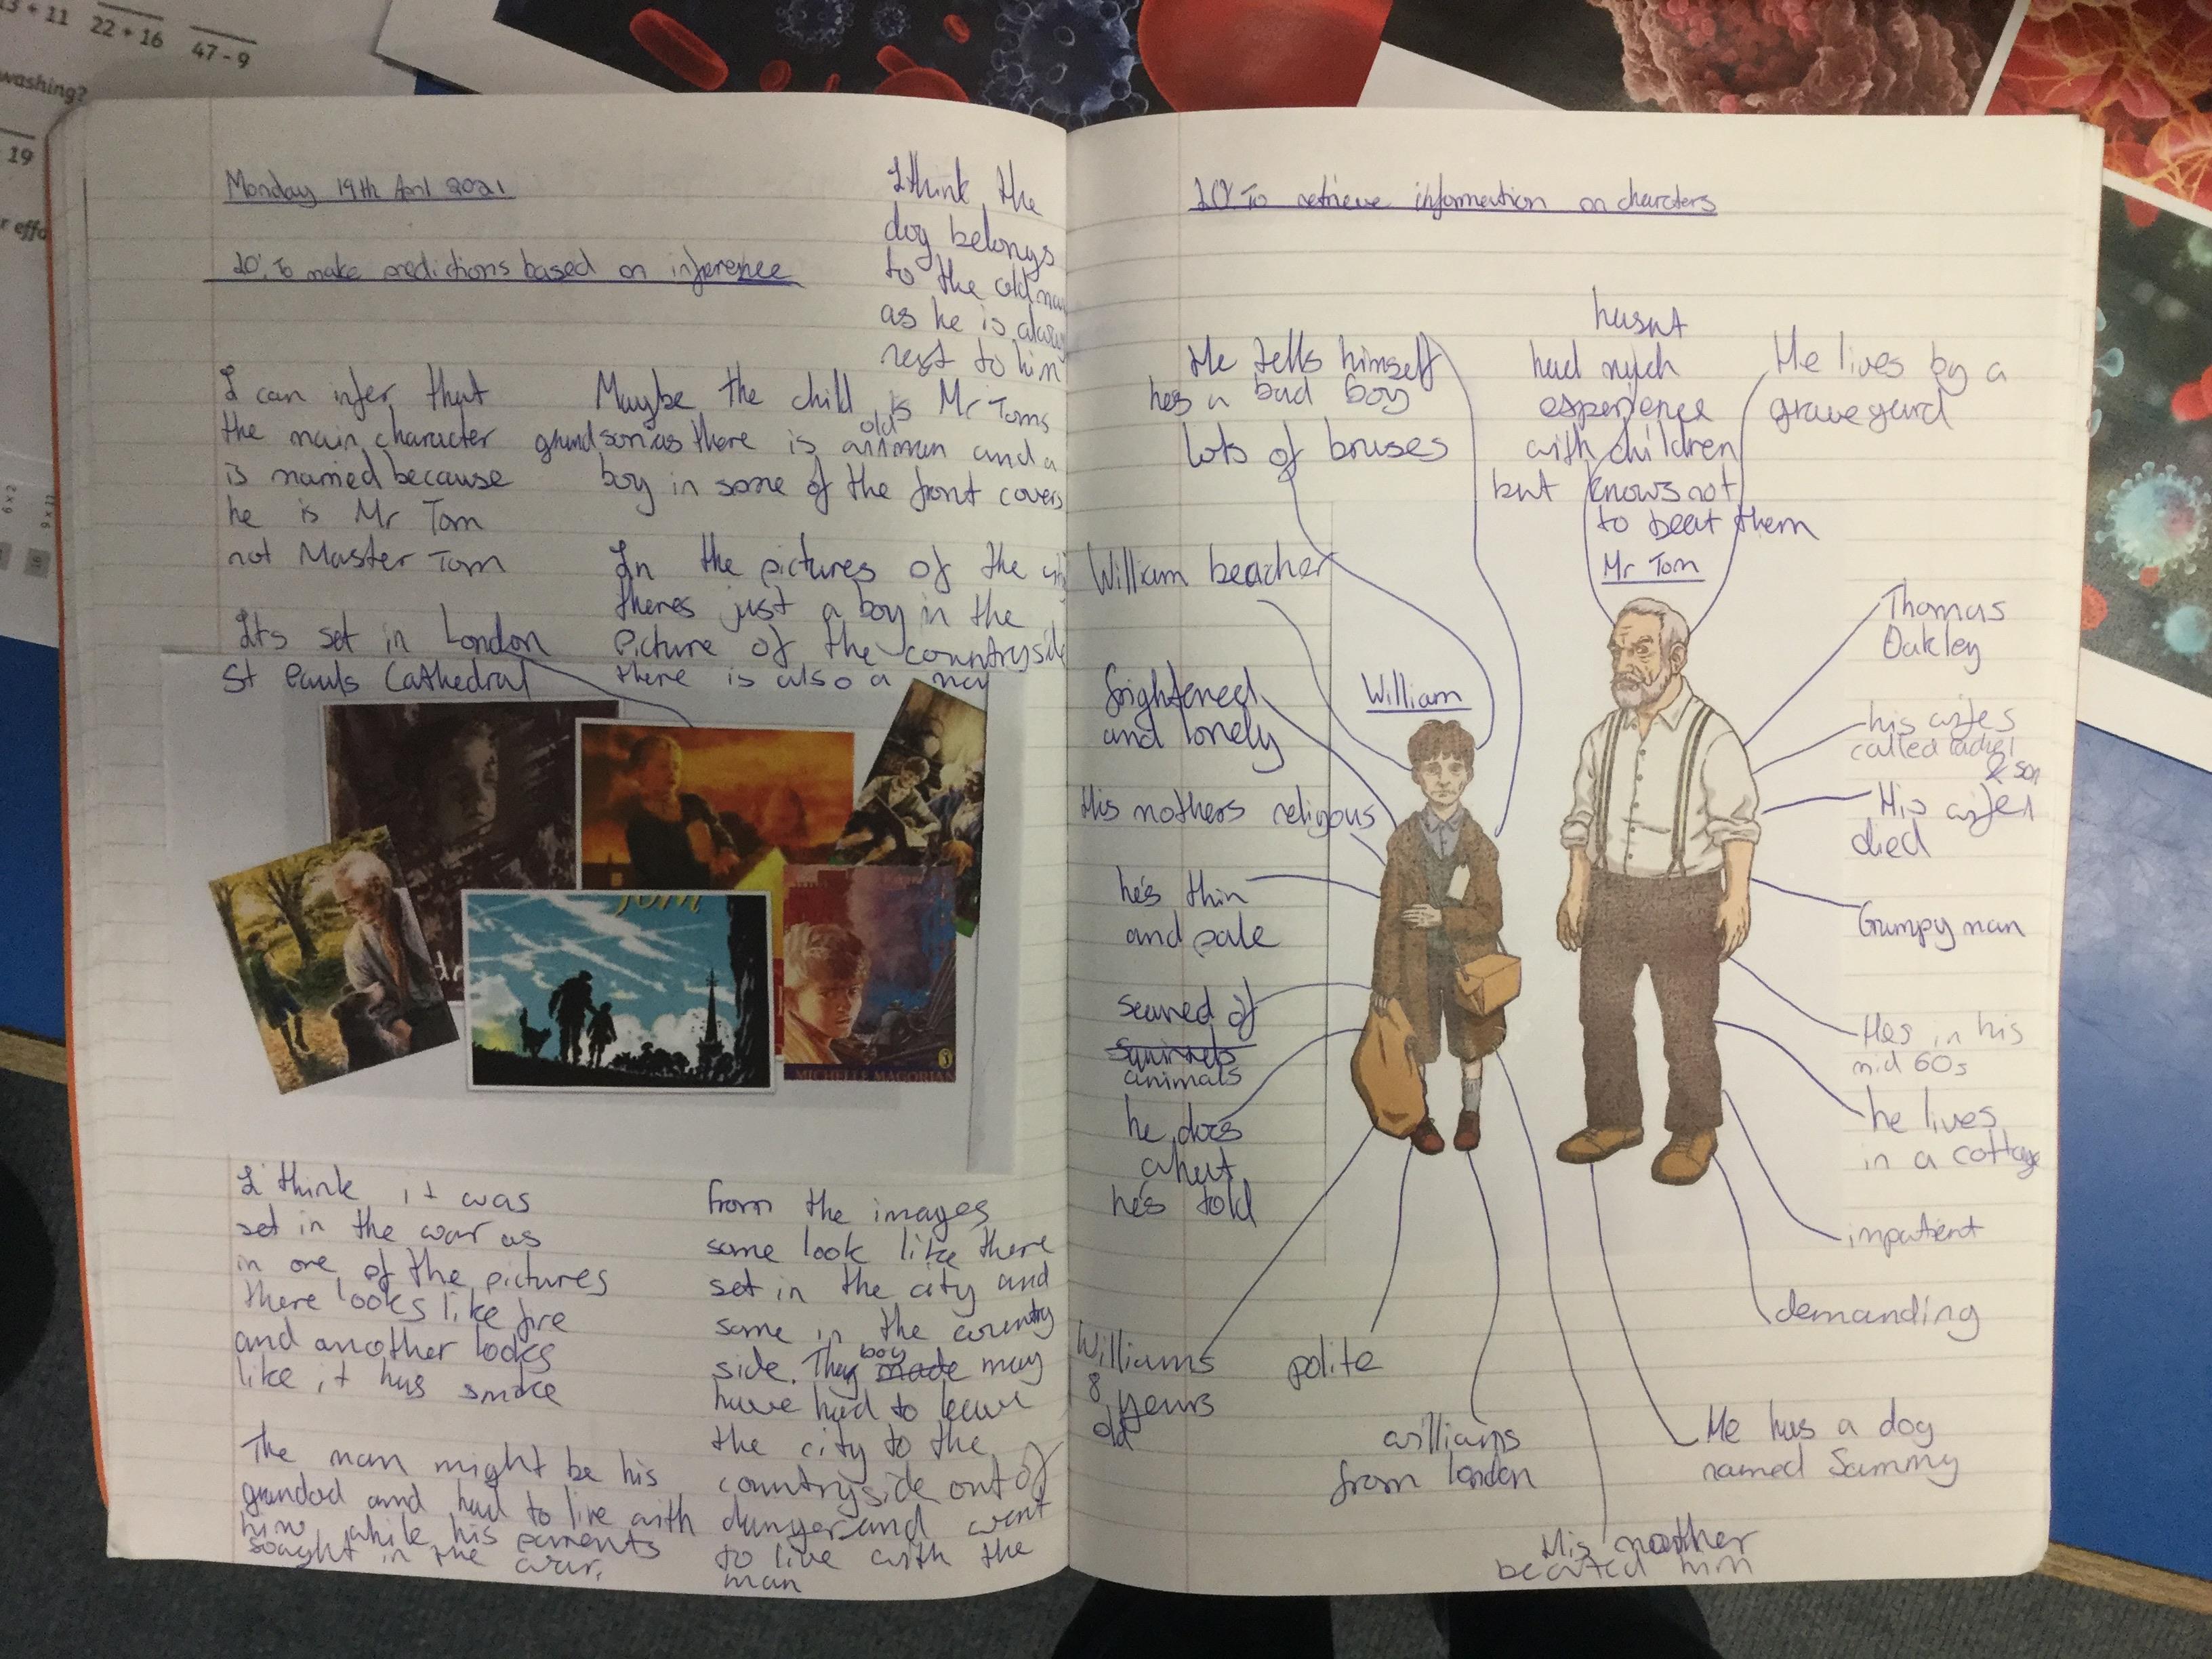 13 + 11
22 + 16
47 - 9
washing?
19
r effo
6 x 2
Monday 19th April 2021
LO: To make predictions based on inference
I think the
dog belongs
to the old man
as he is alway
next to him
I can infer that
the main character
is named because
he is Mr Tom
not Master Tom
Its set in London
St Pauls Cathedral
Maybe the child is Mr Toms
grandson as there is an old man and a
boy in some of the front covers
In the pictures of the
theres just a boy in the
picture of the countryside
there is also a
Tom
MICHELLE MAGORIAN
I think it was
set in the war as
in one of the pictures
there looks like fire
and another looks
like it has smoke
The man might be his
grandad and had to live with
him while his parents
fought in the war.
from the images
some look like there
set in the city and
some in the country
side. They boy made may
have had to leave
the city to the
countryside out of
danger and went
to live with the
man
LO: To retrieve information on charcters
He tells himself
he's a bad boy
lots of bruses
William beacher
frightened
and lonely
His mothers religous
he's thin
and pale
scared of
squirrels
animals
he does
what
he's told
Williams
8 years
old
polite
williams
from london
His mother
beated him
William
hasnt
had much
experience
with children
but knows not
to beat them
Mr Tom
He lives by a
graveyard
Thomas
Oakley
his wifes
called
& son
His wife
died
Grumpy man
Hes in his
mid 60s
he lives
in a cottage
inpatient
demanding
He has a dog
named Sammy